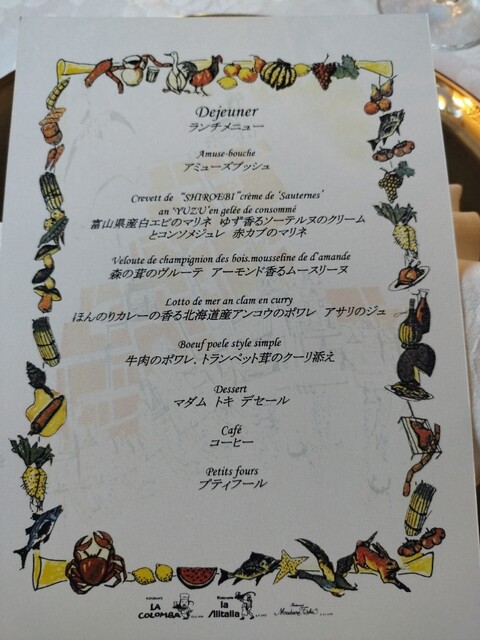 Dejeuner
ランチメニュー
Amuse-bouche
アミューズブッシュ
Crevett de "SHIROEBI" crème de 'Sauternes'
an 'YUZU' en gelée de consommé
富山県産白エビのマリネ ゆず香るソーテルヌのクリーム
とコンソメジュレ 赤カブのマリネ
Veloute de champignion des bois.mousseline de d'amande
森の茸のヴルーテ アーモンド香るムースリーヌ
Lotto de mer an clam en curry
ほんのりカレーの香る北海道産アンコウのポワレ アサリのジュ
Boeuf poele style simple
牛肉のポワレ、トランペット茸のクーリ添え
Dessert
マダム トキ デセール
Café
コーヒー
Petits fours
プティフール
LA COLOMBA
Ristorante la Alitalia
Madame Toki